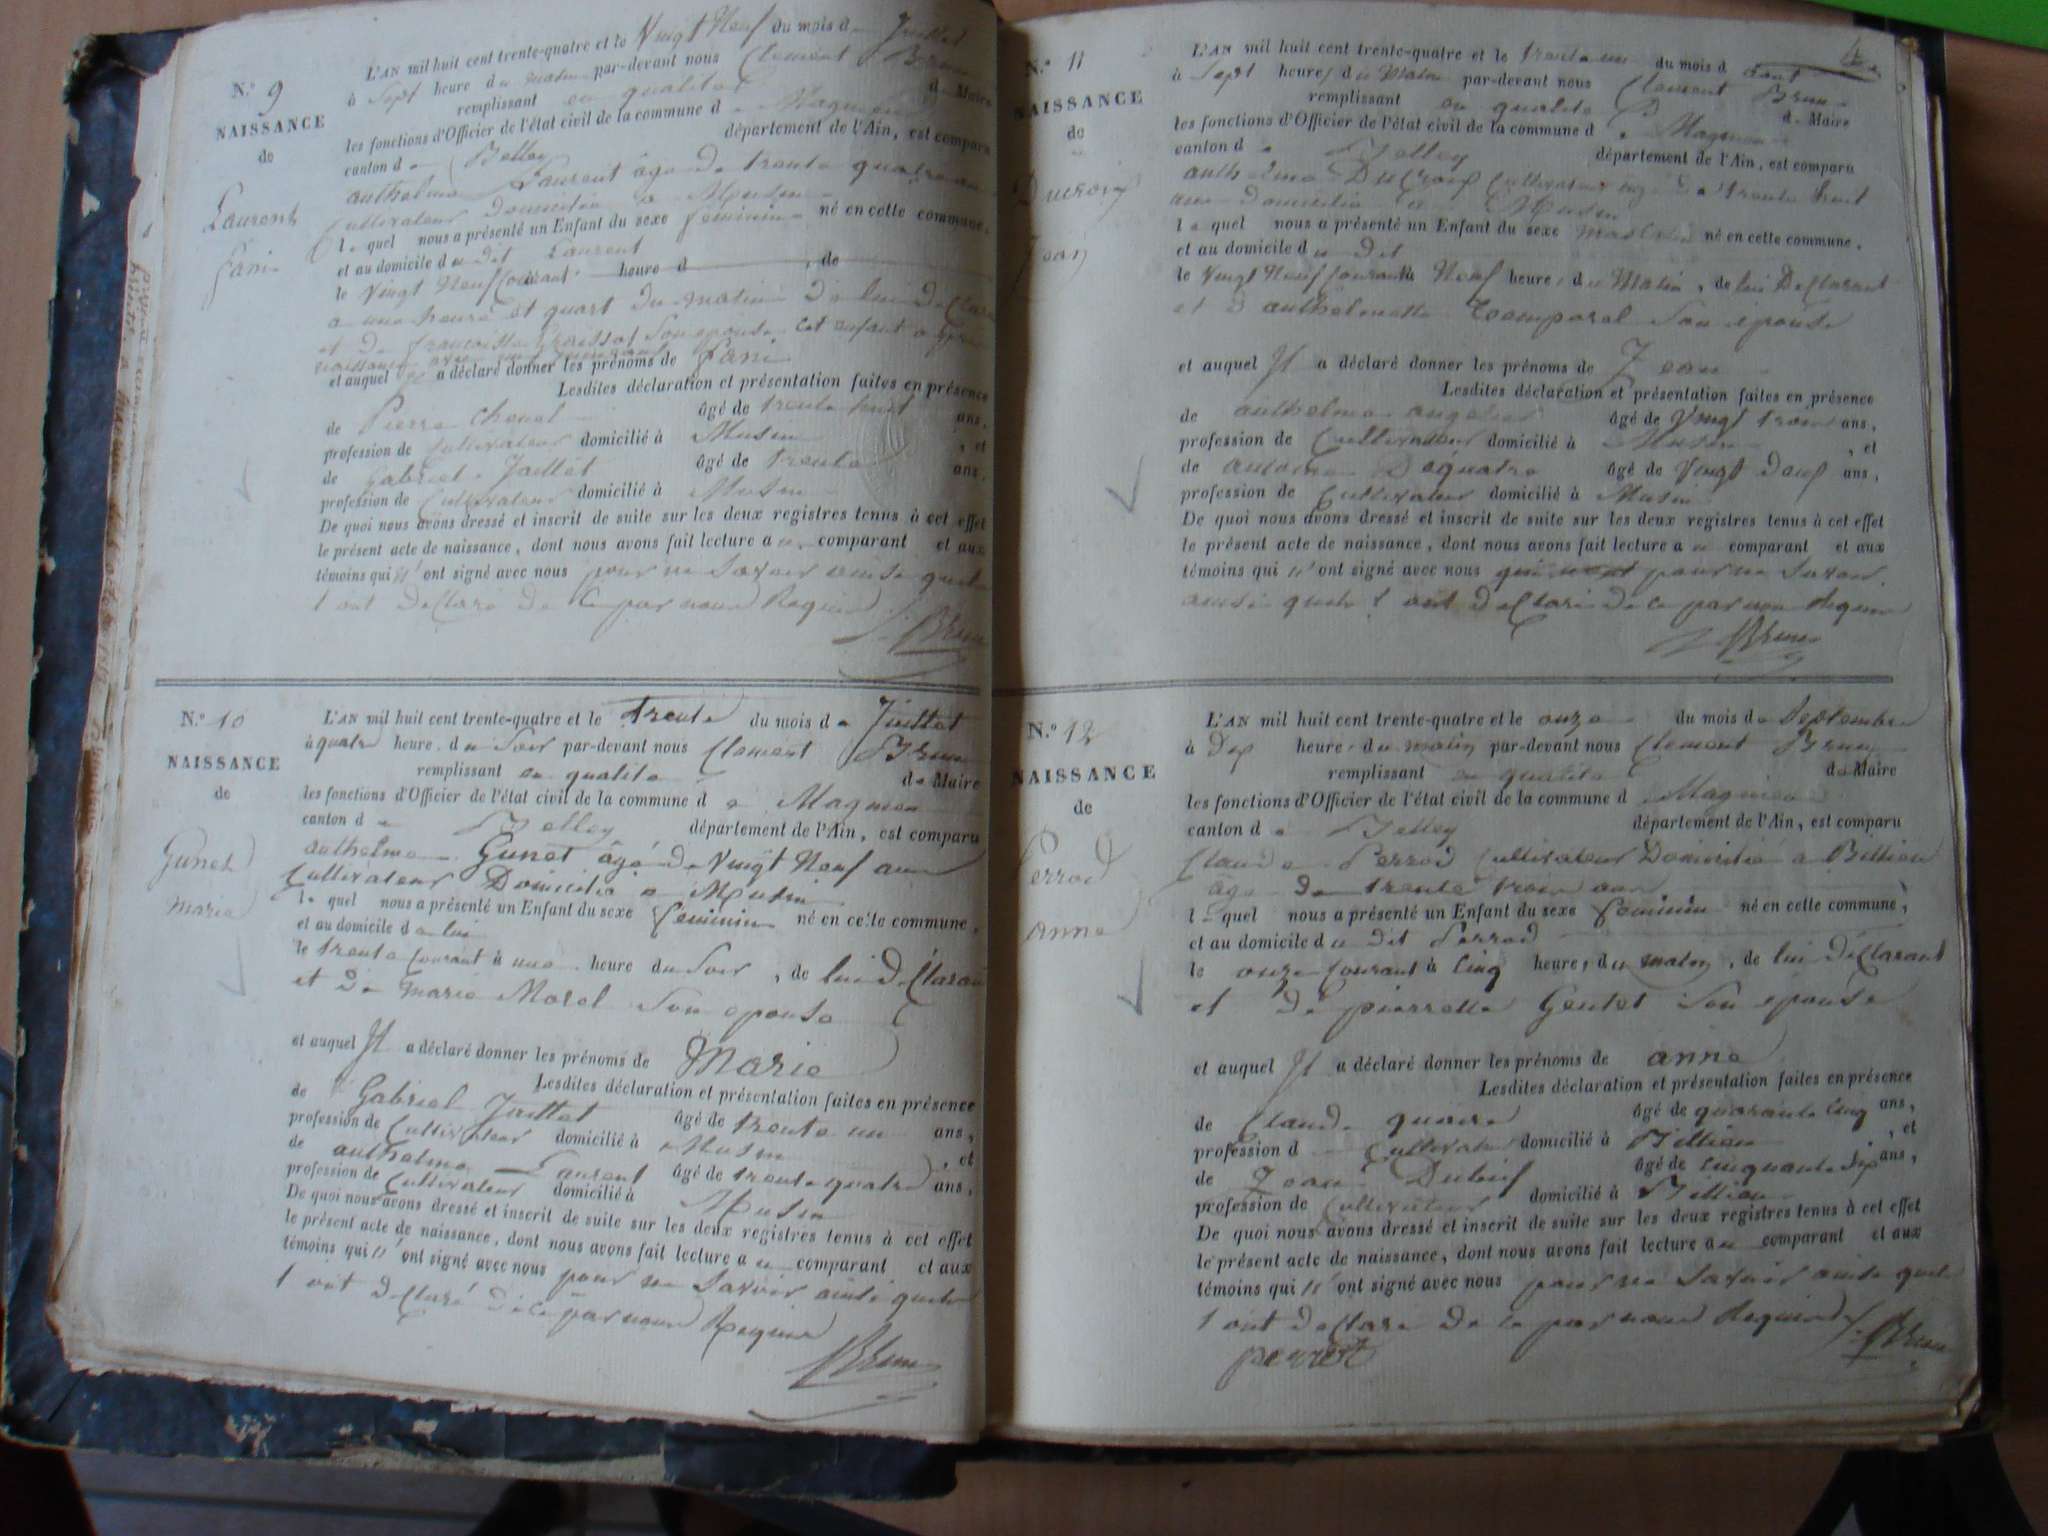 N.º 9
NAISSANCE
de
Laurent
fani
L'AN mil huit cent trente-quatre et le Vingt Neuf du mois de Juillet
à Sept heure du matin par-devant nous Clement Brun
remplissant en qualité de Maire
les fonctions d'Officier de l'état civil de la commune de Magnieu
canton de Belley département de l'Ain, est comparu
anthelme Laurent âgé de trente quatre ans
Cultivateur domicilié à Musin
lequel nous a présenté un Enfant du sexe feminin né en cette commune,
et au domicile du dit Laurent
le Vingt Neuf Courant heure d de
a une heure et quart du matin de lui Déclarant
et De francoise son epouse cet enfant a
naissance
et auquel Il a déclaré donner les prénoms de fani
Lesdites déclaration et présentation faites en présence
de Pierre âgé de trente huit ans,
profession de Cultivateur domicilié à Musin , et
de Gabriel Juillet âgé de trente ans,
profession de Cultivateur domicilié à Musin
De quoi nous avons dressé et inscrit de suite sur les deux registres tenus à cet effet
le présent acte de naissance, dont nous avons fait lecture au comparant et aux
témoins qui n'ont signé avec nous pour ne Savoir ainsi quils
l ont Déclaré De ce par nous Requis
Brun
N.º 10
NAISSANCE
de
Gunet
marie
L'AN mil huit cent trente-quatre et le trente du mois de Juillet
à quatre heure du Soir par-devant nous Clement Brun
remplissant en qualité de Maire
les fonctions d'Officier de l'état civil de la commune de Magnieu
canton de Belley département de l'Ain, est comparu
anthelme Gunet âgé de Vingt Neuf ans
Cultivateur Domicilié a Musin
lequel nous a présenté un Enfant du sexe feminin né en cette commune,
et au domicile de lui
le trente Courant à une heure du Soir, de lui Déclarant
et De marie Morel Son epouse
et auquel Il a déclaré donner les prénoms de Marie
Lesdites déclaration et présentation faites en présence
de Gabriel Juillet âgé de trente un ans,
profession de Cultivateur domicilié à Musin , et
de anthelme Laurent âgé de trente quatre ans,
profession de Cultivateur domicilié à Musin
De quoi nous avons dressé et inscrit de suite sur les deux registres tenus à cet effet
le présent acte de naissance, dont nous avons fait lecture au comparant et aux
témoins qui n'ont signé avec nous pour ne Savoir ainsi quils
l ont Déclaré De ce par nous Requis
Brun
N.º 11
NAISSANCE
de
Ducroix
Jean
L'AN mil huit cent trente-quatre et le trente un du mois d août
à Sept heures du Matin par-devant nous Clement Brun
remplissant en qualité de Maire
les fonctions d'Officier de l'état civil de la commune de Magnieu
canton de Belley département de l'Ain, est comparu
anthelme Ducroix Cultivateur agé de trente huit
ans domicilié a Musin
lequel nous a présenté un Enfant du sexe masculin né en cette commune,
et au domicile du dit
le Vingt Neuf Courant à Neuf heure, du Matin, de lui Déclarant
et d anthelmette Temporal Son epouse
et auquel Il a déclaré donner les prénoms de Jean
Lesdites déclaration et présentation faites en présence
de anthelme âgé de Vingt trois ans,
profession de Cultivateur domicilié à Musin , et
de antoine Dequatre âgé de Vingt Deux ans,
profession de Cultivateur domicilié à Musin
De quoi nous avons dressé et inscrit de suite sur les deux registres tenus à cet effet
le présent acte de naissance, dont nous avons fait lecture au comparant et aux
témoins qui n'ont signé avec nous pour ne Savoir
ainsi quils l ont Déclaré de ce par nous Requis
Brun
N.º 12
NAISSANCE
de
Perrod
anne
L'AN mil huit cent trente-quatre et le onze du mois de Septembre
à Dix heure, du matin par-devant nous Clement Brun
remplissant en qualité de Maire
les fonctions d'Officier de l'état civil de la commune de Magnieu
canton de Belley département de l'Ain, est comparu
Claude Perrod Cultivateur Domicilié a Billieu
âgé de trente trois ans
lequel nous a présenté un Enfant du sexe feminin né en cette commune,
et au domicile du dit Perrod
le onze Courant à Cinq heure, du matin, de lui Déclarant
et de pierrette Gentet Son epouse
et auquel Il a déclaré donner les prénoms de anne
Lesdites déclaration et présentation faites en présence
de Claude âgé de quarante Cinq ans,
profession de Cultivateur domicilié à Billieu , et
de Jean Dubuif âgé de Cinquante Six ans,
profession de Cultivateur domicilié à Billieu
De quoi nous avons dressé et inscrit de suite sur les deux registres tenus à cet effet
le présent acte de naissance, dont nous avons fait lecture au comparant et aux
témoins qui n'ont signé avec nous pour ne Savoir ainsi quils
l ont Déclaré De ce par nous Requis
Brun
perret